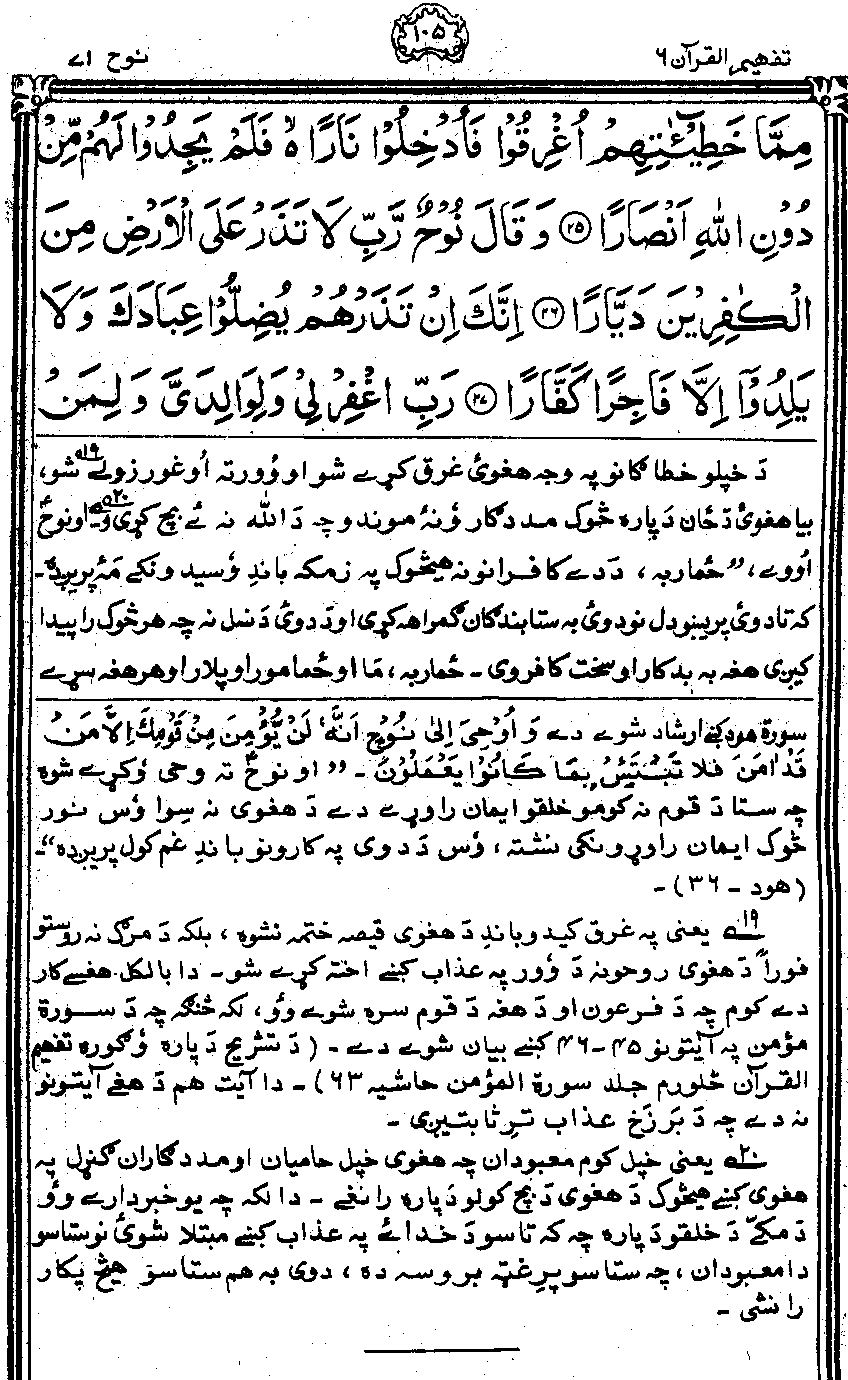 تفهیم القرآن ۶
۱۰۵
نوح ۷۱
مِمَّا خَطِيْٓـٰٔتِهِمْ اُغْرِقُوْا فَاُدْخِلُوْا نَارًا ۙ فَلَمْ يَجِدُوْا لَهُمْ مِّنْ
دُوْنِ اللّٰهِ اَنْصَارًا ﴿۲۵﴾ وَ قَالَ نُوْحٌ رَّبِّ لَا تَذَرْ عَلَى الْاَرْضِ مِنَ
الْكٰفِرِيْنَ دَيَّارًا ﴿۲۶﴾ اِنَّكَ اِنْ تَذَرْهُمْ يُضِلُّوْا عِبَادَكَ وَ لَا
يَلِدُوْٓا اِلَّا فَاجِرًا كَفَّارًا ﴿۲۷﴾ رَبِّ اغْفِرْ لِيْ وَ لِوَالِدَيَّ وَ لِمَنْ
دَ خپلو خطاګانو په وجه هغوئ غرق کړے شو او وُور ته اُوغورزولے ۱۹ شو،
بیا هغوئ دَ ځان دَپاره څوک مددګار وُنۀ موندو چه دَ الله نه ئے بچ کړی وے ۲۰ـ او نوحؑ
اُووے، ”ځما ربه، دَ دے کافرانو نه هیڅوک په زمکه باندِ وُسیدونکے مَۀ پریږده۔
که تا دوئ پریښودل نو دوئ به ستا بندګان ګمراه کړی او دَ دوئ دَ نسل نه چه هر څوک را پیدا
کیږی هغه به بدکار او سخت کافر وی ۔ ځما ربه، مَا او ځما مور او پلار او هر هغه سړے
سورة هود کښے ارشاد شوے دے وَ اُوْحِيَ اِلٰى نُوْحٍ اَنَّهٗ لَنْ يُّؤْمِنَ مِنْ قَوْمِكَ اِلَّا مَنْ
قَدْ اٰمَنَ فَلَا تَبْتَئِسْ بِمَا كَانُوْا يَفْعَلُوْنَ ۔ ”او نوحؑ ته وحی وُکړے شوه
چه ستا دَ قوم نه کومو خلقو ایمان راوړے دے دَ هغوی نه سِوا وُس نور
څوک ایمان راوړونکی نشته، وُس دَ دوی په کارونو باندِ غم کول پریږده“۔
(هود ۔ ۳۶) ۔
۱۹ یعنی په غرق کیدو باندِ دَ هغوی قیصه ختمه نشوه، بلکه دَ مرګ نه روستو
فوراً دَ هغوی روحونه دَ وُور په عذاب کښے اخته کړے شو۔ دا بالکل هغسے کار
دے کوم چه دَ فرعون او دَ هغه دَ قوم سره شوے وُو، لکه څنګه چه دَ سورة
مؤمن په آیتونو ۴۵-۴۶ کښے بیان شوے دے۔ (دَ تشریح دَپاره وُګوره تفهیم
القرآن څلورم جلد سورة المؤمن حاشیه ۶۳) ۔ دا آیت هم دَ هغے آیتونو
نه دے چه دَ بَرزَخ عذاب ترِ ثابتیږی ۔
۲۰ یعنی خپل کوم معبودان چه هغوی خپل حامیان او مددګاران ګنړل په
هغوی کښے هیڅوک دَ هغوی دَ بچ کولو دَپاره رانغے ۔ دا لکه چه یو خبردارے وُو
دَ مکّے دَ خلقو دَپاره چه که تاسو دَ خدائے په عذاب کښے مبتلا شوئ نو ستاسو
دا معبودان، چه ستاسو پرِ غټه بروسه ده، دوی به هم ستاسو هیڅ پکار
را نشی ۔